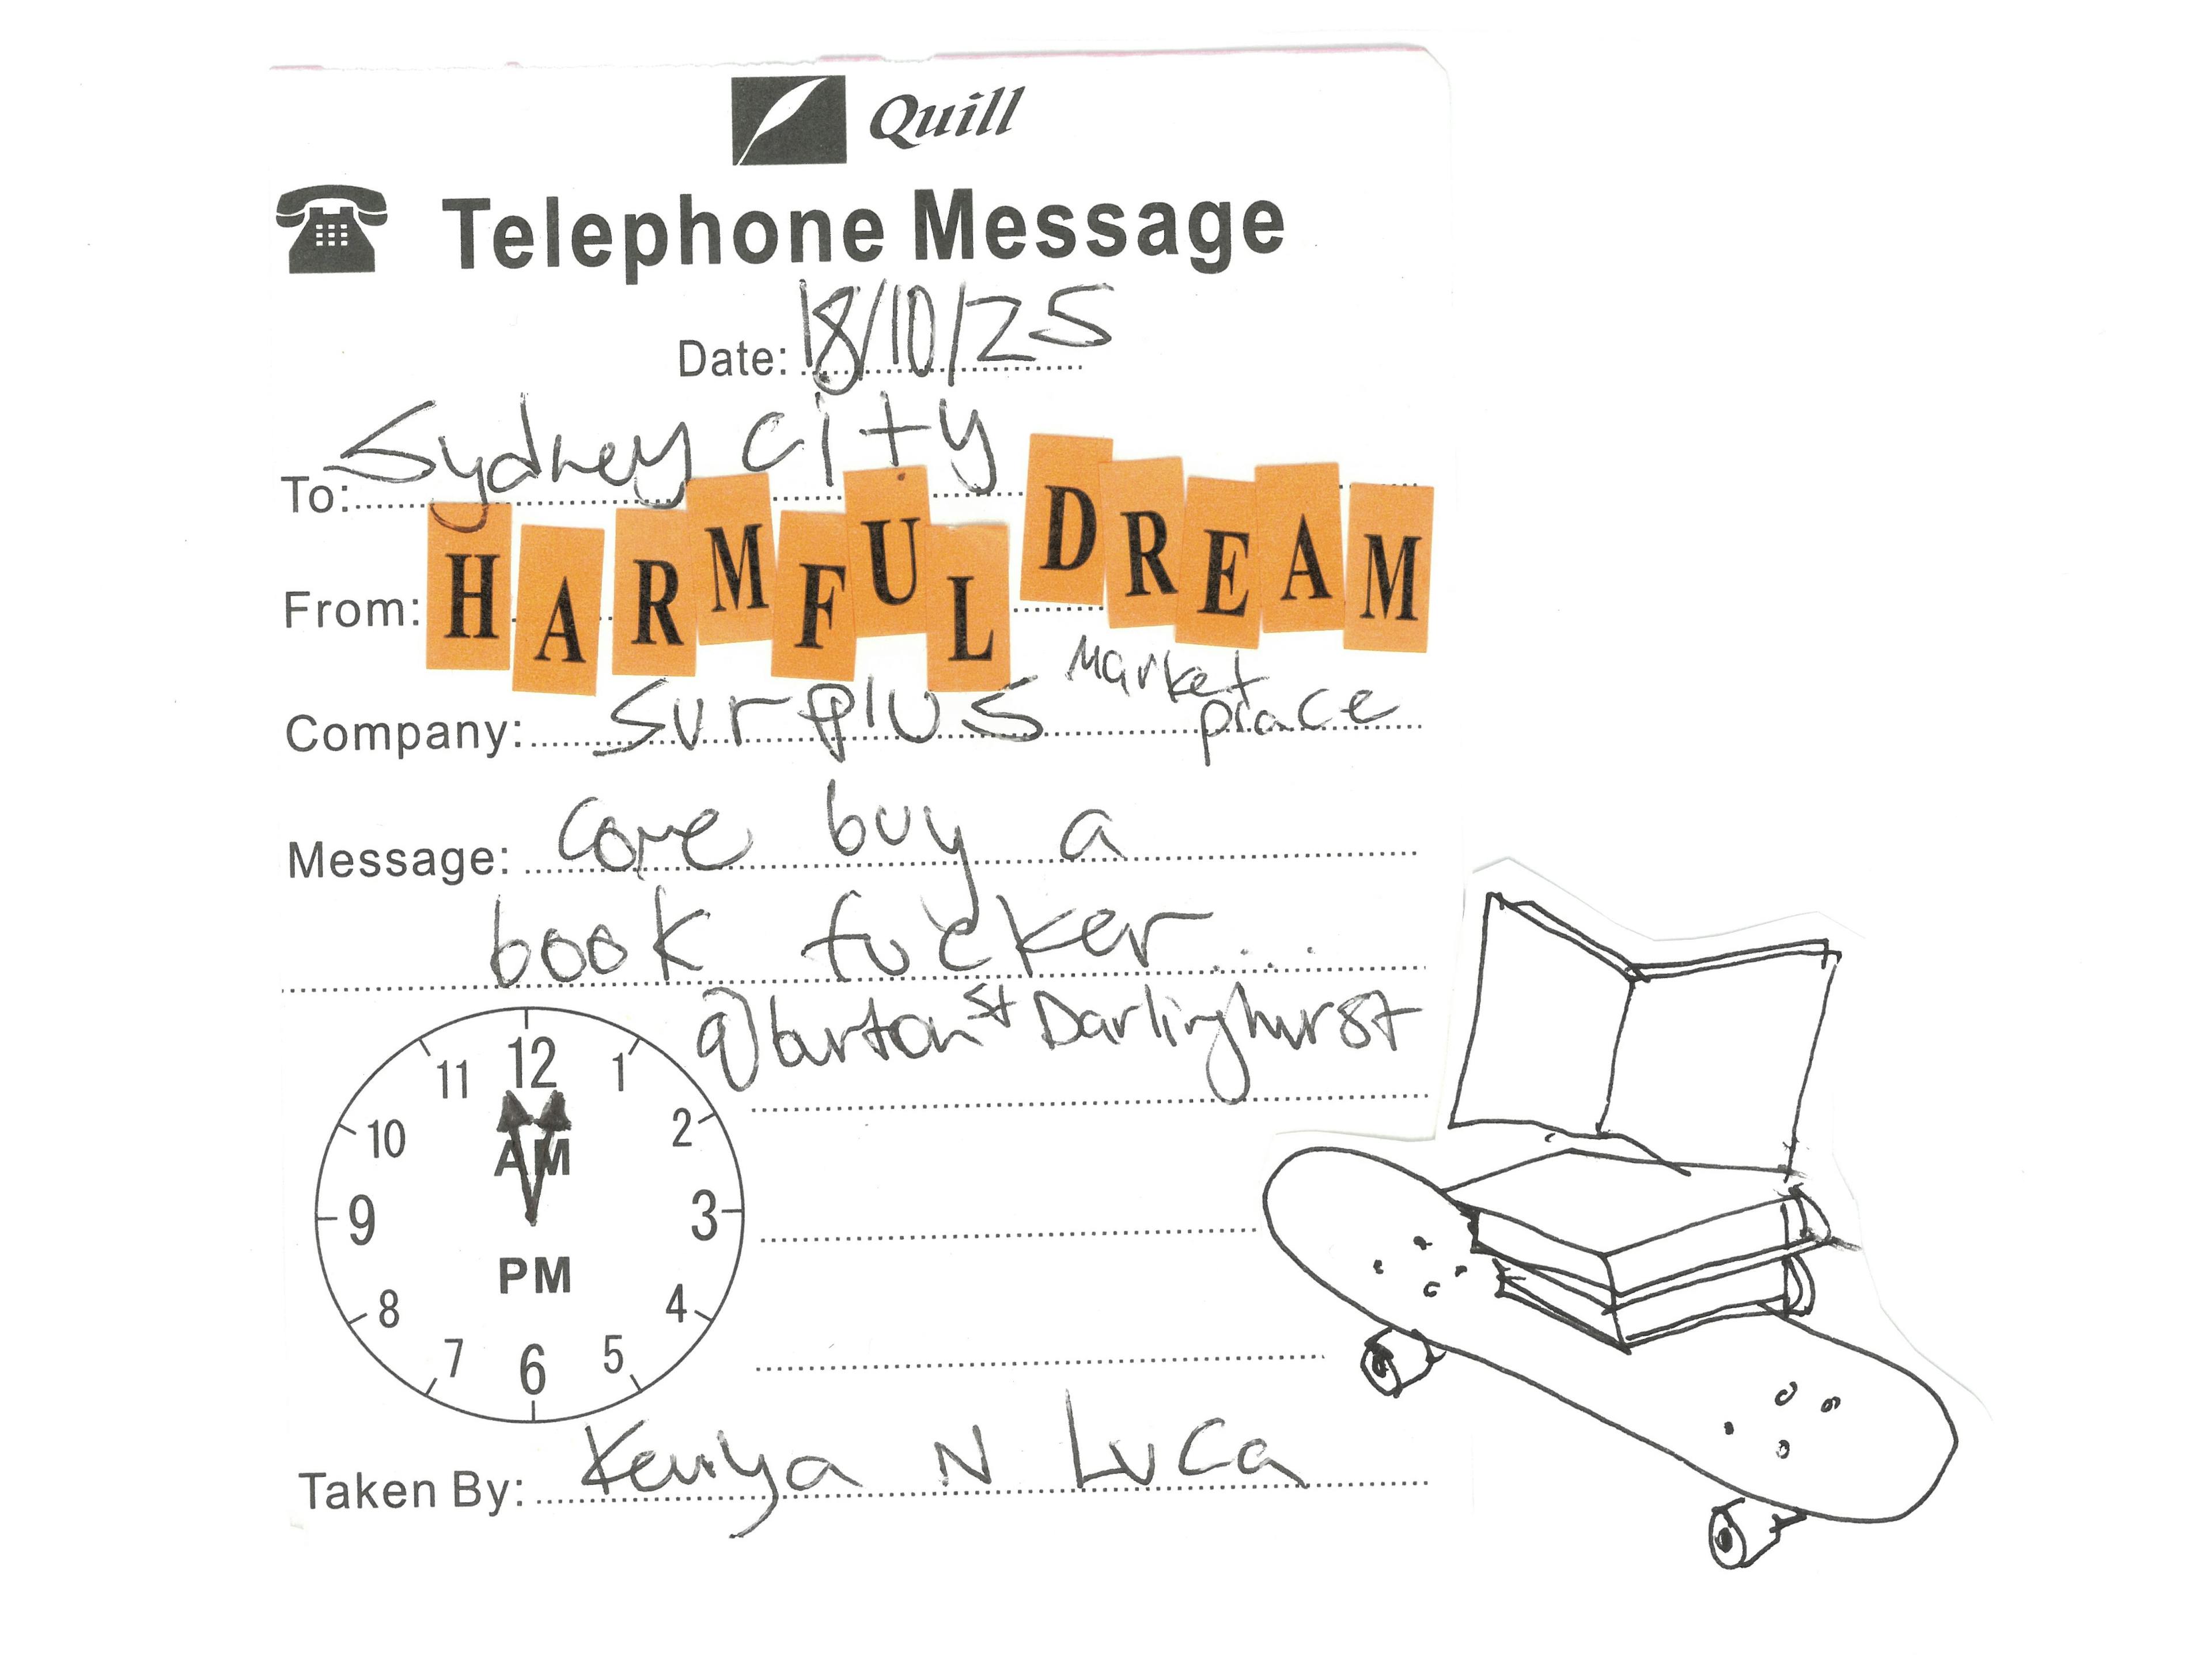 Quill
Telephone Message
Date: 18/10/25
To: Sydney City
From: HARMFUL DREAM
Company: Surplus Market place
Message: Come buy a
book fucker....
@ burton st Darlinghurst
12
11 1
10 2
AM
9 3
PM
8 4
7 5
6
Taken By: Kenya N Luca